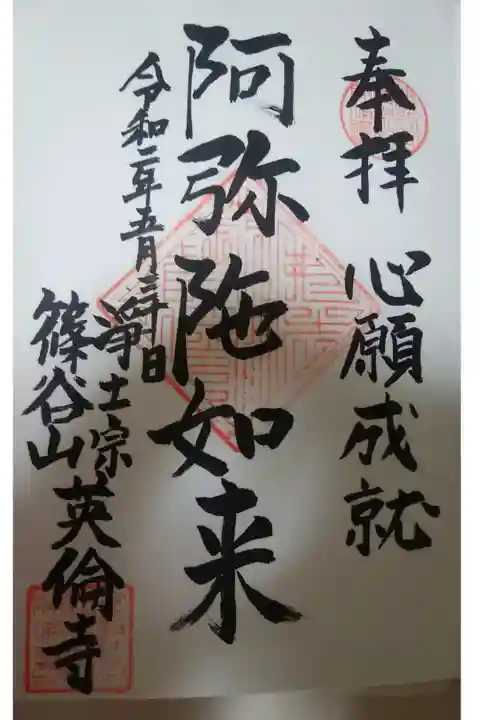 奉拝 心願成就
阿弥陀如来
令和二年五月三十日
浄土宗
篠谷山英倫寺